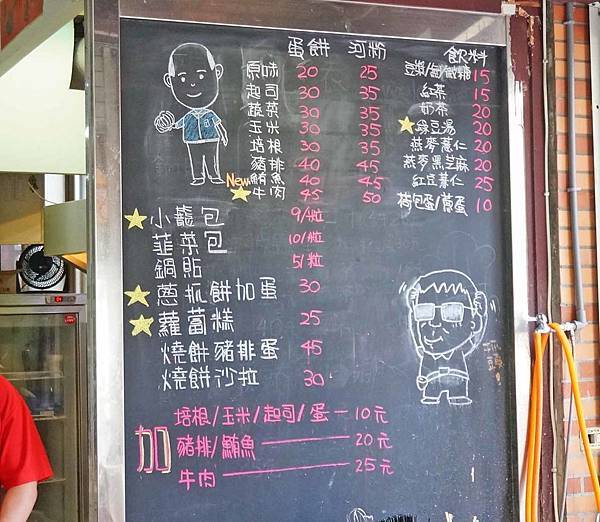 蛋餅 河粉
原味 20 25
起司 30 35
蔬菜 30 35
玉米 30 35
培根 30 35
豬排 40 45
New 鮪魚 40 45
牛肉 45 50
飲料
豆漿/無/微糖 15
紅茶 15
奶茶 20
綠豆湯 20
燕麥薏仁 20
燕麥黑芝麻 20
紅豆薏仁 25
荷包蛋/蔥蛋 10
小籠包 9/粒
韮菜包 10/粒
鍋貼 5/粒
蔥抓餅加蛋 30
蘿蔔糕 25
燒餅豬排蛋 45
燒餅沙拉 30
加
培根/玉米/起司/蛋 — 10元
豬排/鮪魚 — 20元
牛肉 — 25元